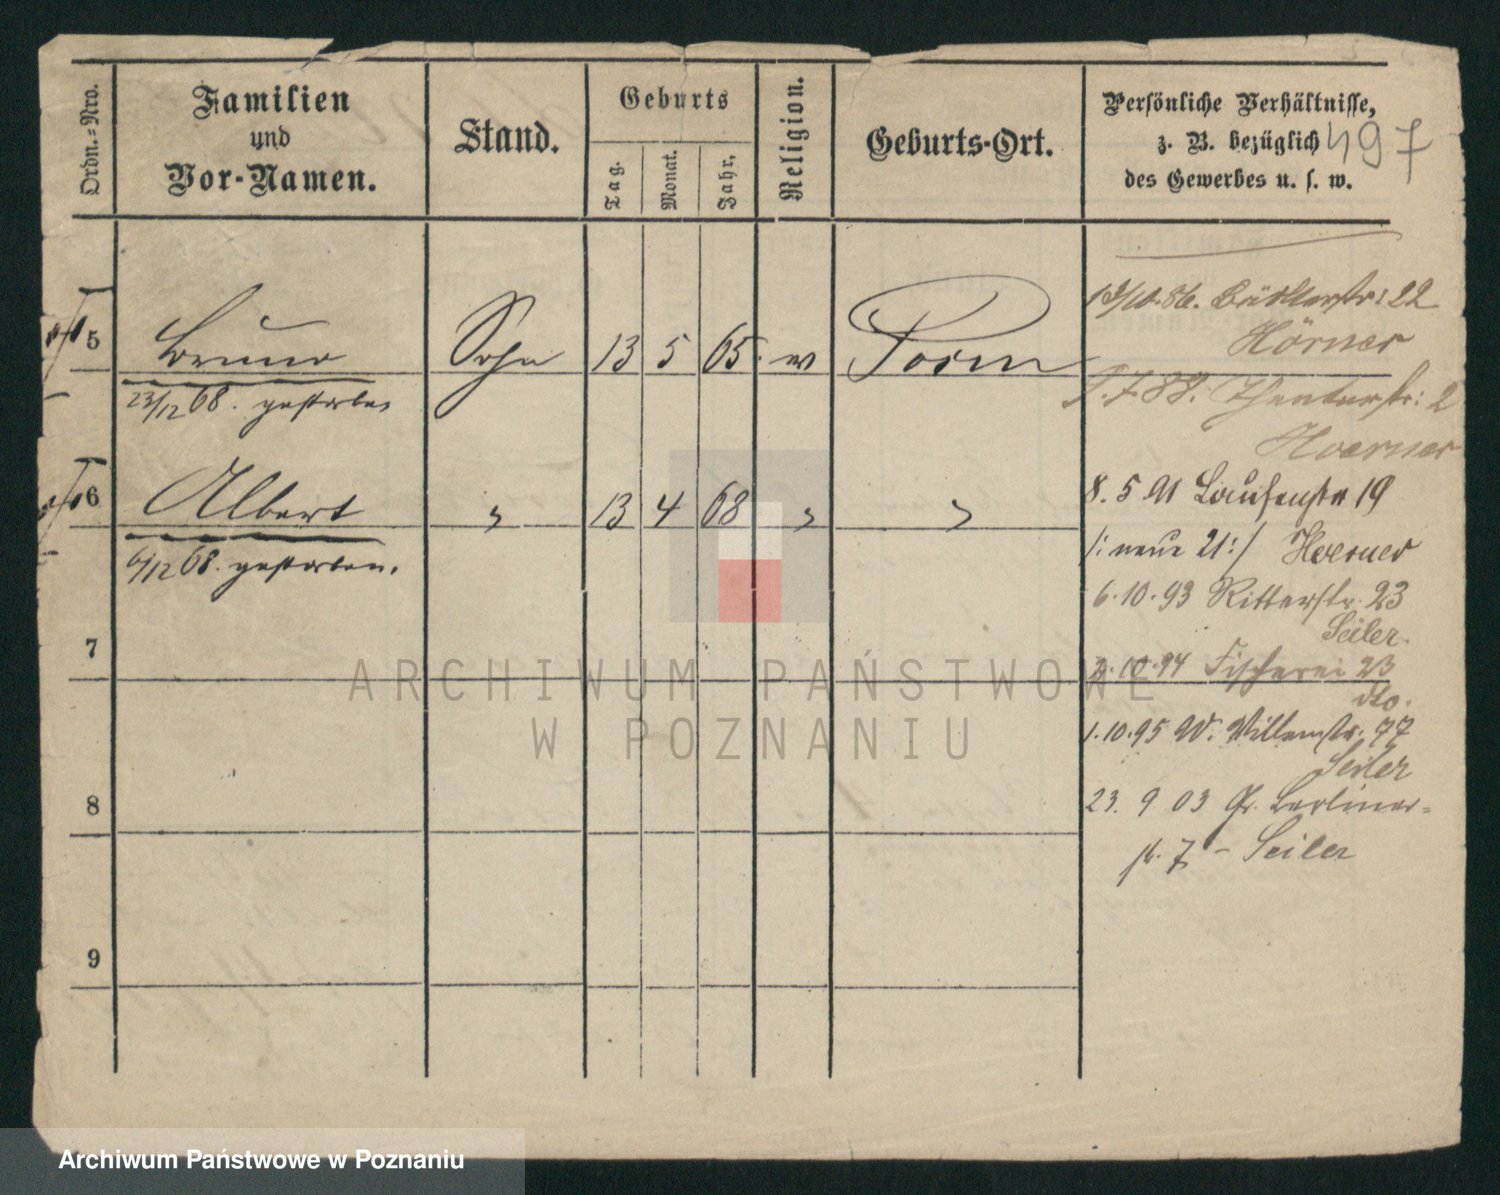 Ordn.=Nro.
Familien
und
Vor-Namen.
Stand.
Geburts
Tag.
Monat.
Jahr.
Religion.
Geburts-Ort.
Persönliche Verhältnisse,
z. B. bezüglich
des Gewerbes u. s. w.
497
5 Bruno Sohn 13 5 65. Posen
23/12 68. gestorben
6 Albert " 13 4 68 " "
6/12 68. gestorben.
7
8
9
10.86. 22
Hörner
7.88. Theaterstr: 2
Hoerner
8. 5 91 19
/: neue 21:/ Hoerner
6.10.93 Ritterstr. 23
Seiler.
10.94 Fischerei 23
dto.
1.10.95 W. 77
Seiler
23. 9 03 Gr. Berliner=
str. 7 - Seiler
ARCHIWUM PAŃSTWOWE
W POZNANIU
Archiwum Państwowe w Poznaniu